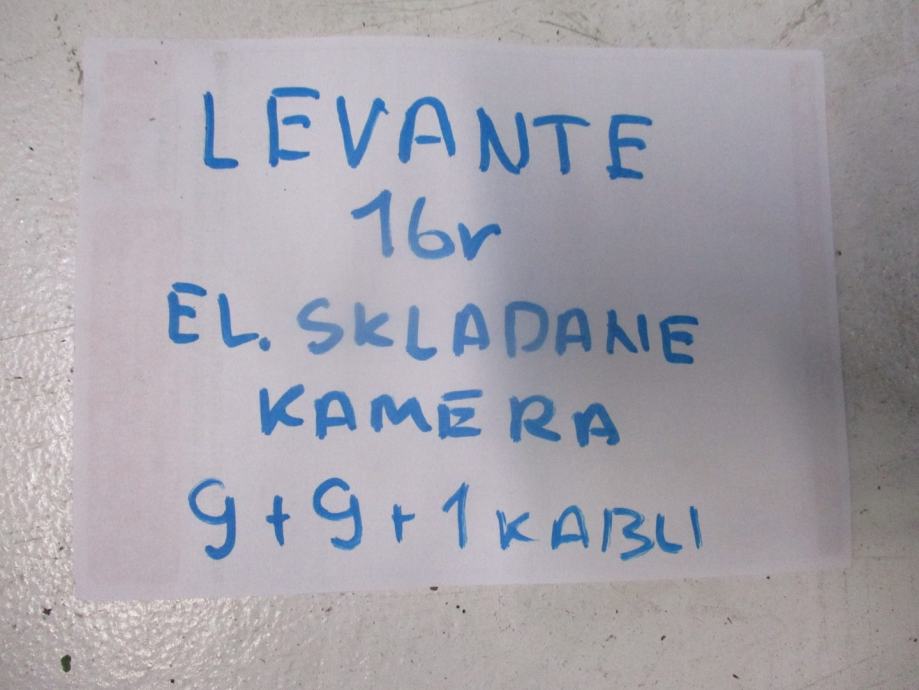 LEVANTE
16r
EL. SKLADANE
KAMERA
9+9+1 KABLI